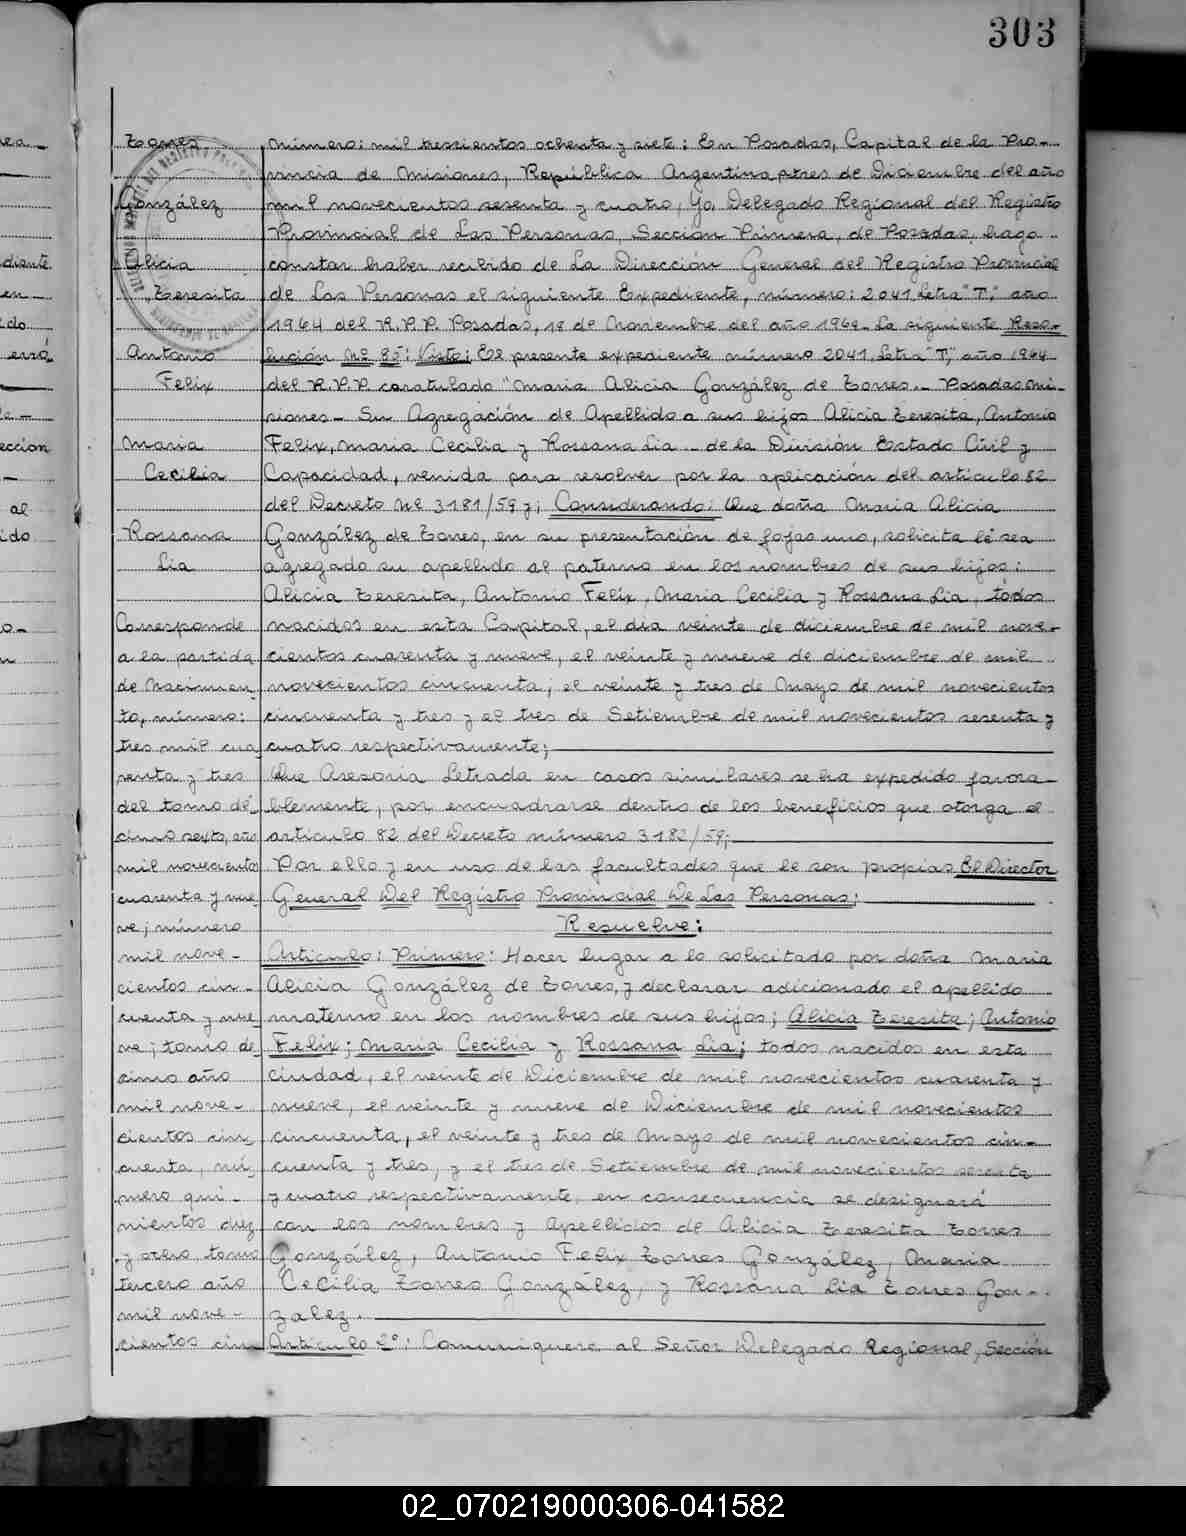 303
Torres
González
Alicia
Teresita
Antonio
Felix
Maria
Cecilia
Rossana
Lia
Corresponde
a la partida
de Nacimien-
to, número:
tres mil cua
renta y tres
del tomo dé-
cimo sexto, año
mil novecientos
cuarenta y nue-
ve; número
mil nove-
cientos cin-
cuenta y nue
ve; tomo de
cimo año
mil nove-
cientos cin
cuenta, nú-
mero qui-
nientos diez
y ocho tomo
tercero año
mil nove-
cientos cin
número: mil trescientos ochenta y siete: En Posadas, Capital de la Pro-
vincia de Misiones, República Argentina a tres de Diciembre del año
mil novecientos sesenta y cuatro, Yo, Delegado Regional del Registro
Provincial de Las Personas, Sección Primera, de Posadas, hago
constar haber recibido de La Dirección General del Registro Provincial
de Las Personas el siguiente Expediente, número: 2041 Letra "T", año
1964 del R.P.P. Posadas, 18 de Noviembre del año 1964. La siguiente Reso-
lución Nº 85: Visto: El presente expediente número 2041, Letra "T", año 1964
del R.P.P. caratulado "Maria Alicia González de Torres.- Posadas Mi-
siones- Su Agregación de Apellido a sus hijos Alicia Teresita, Antonio
Felix, Maria Cecilia y Rossana Lia - de la División Estado Civil y
Capacidad, venida para resolver por la aplicación del artículo 82
del Decreto Nº 3181/59 y; Considerando: Que doña Maria Alicia
González de Torres, en su presentación de fojas uno, solicita le sea
agregado su apellido al paterno en los nombres de sus hijos:
Alicia Teresita, Antonio Felix, Maria Cecilia y Rossana Lia, todos
nacidos en esta Capital, el día veinte de diciembre de mil nove-
cientos cuarenta y nueve, el veinte y nueve de diciembre de mil
novecientos cincuenta; el veinte y tres de Mayo de mil novecientos
cincuenta y tres y el tres de Setiembre de mil novecientos sesenta y
cuatro respectivamente;
Que Asesoria Letrada en casos similares se ha expedido favora-
blemente, por encuadrarse dentro de los beneficios que otorga el
artículo 82 del Decreto número 3182/59;
Por ello y en uso de las facultades que le son propias El Director
General Del Registro Provincial De Las Personas:
Resuelve:
Artículo: Primero: Hacer lugar a lo solicitado por doña Maria
Alicia González de Torres, y declarar adicionado el apellido
materno en los nombres de sus hijos; Alicia Teresita; Antonio
Felix; Maria Cecilia y Rossana Lia; todos nacidos en esta
ciudad, el veinte de Diciembre de mil novecientos cuarenta y
nueve, el veinte y nueve de Diciembre de mil novecientos
cincuenta, el veinte y tres de Mayo de mil novecientos cin-
cuenta y tres, y el tres de Setiembre de mil novecientos sesenta
y cuatro respectivamente, en consecuencia se designará
con los nombres y Apellidos de Alicia Teresita Torres
González, Antonio Felix Torres González, Maria
Cecilia Torres González, y Rossana Lia Torres Gon-
zalez.
Artículo 2º: Comuniquese al Señor Delegado Regional, Sección
02_070219000306-041582